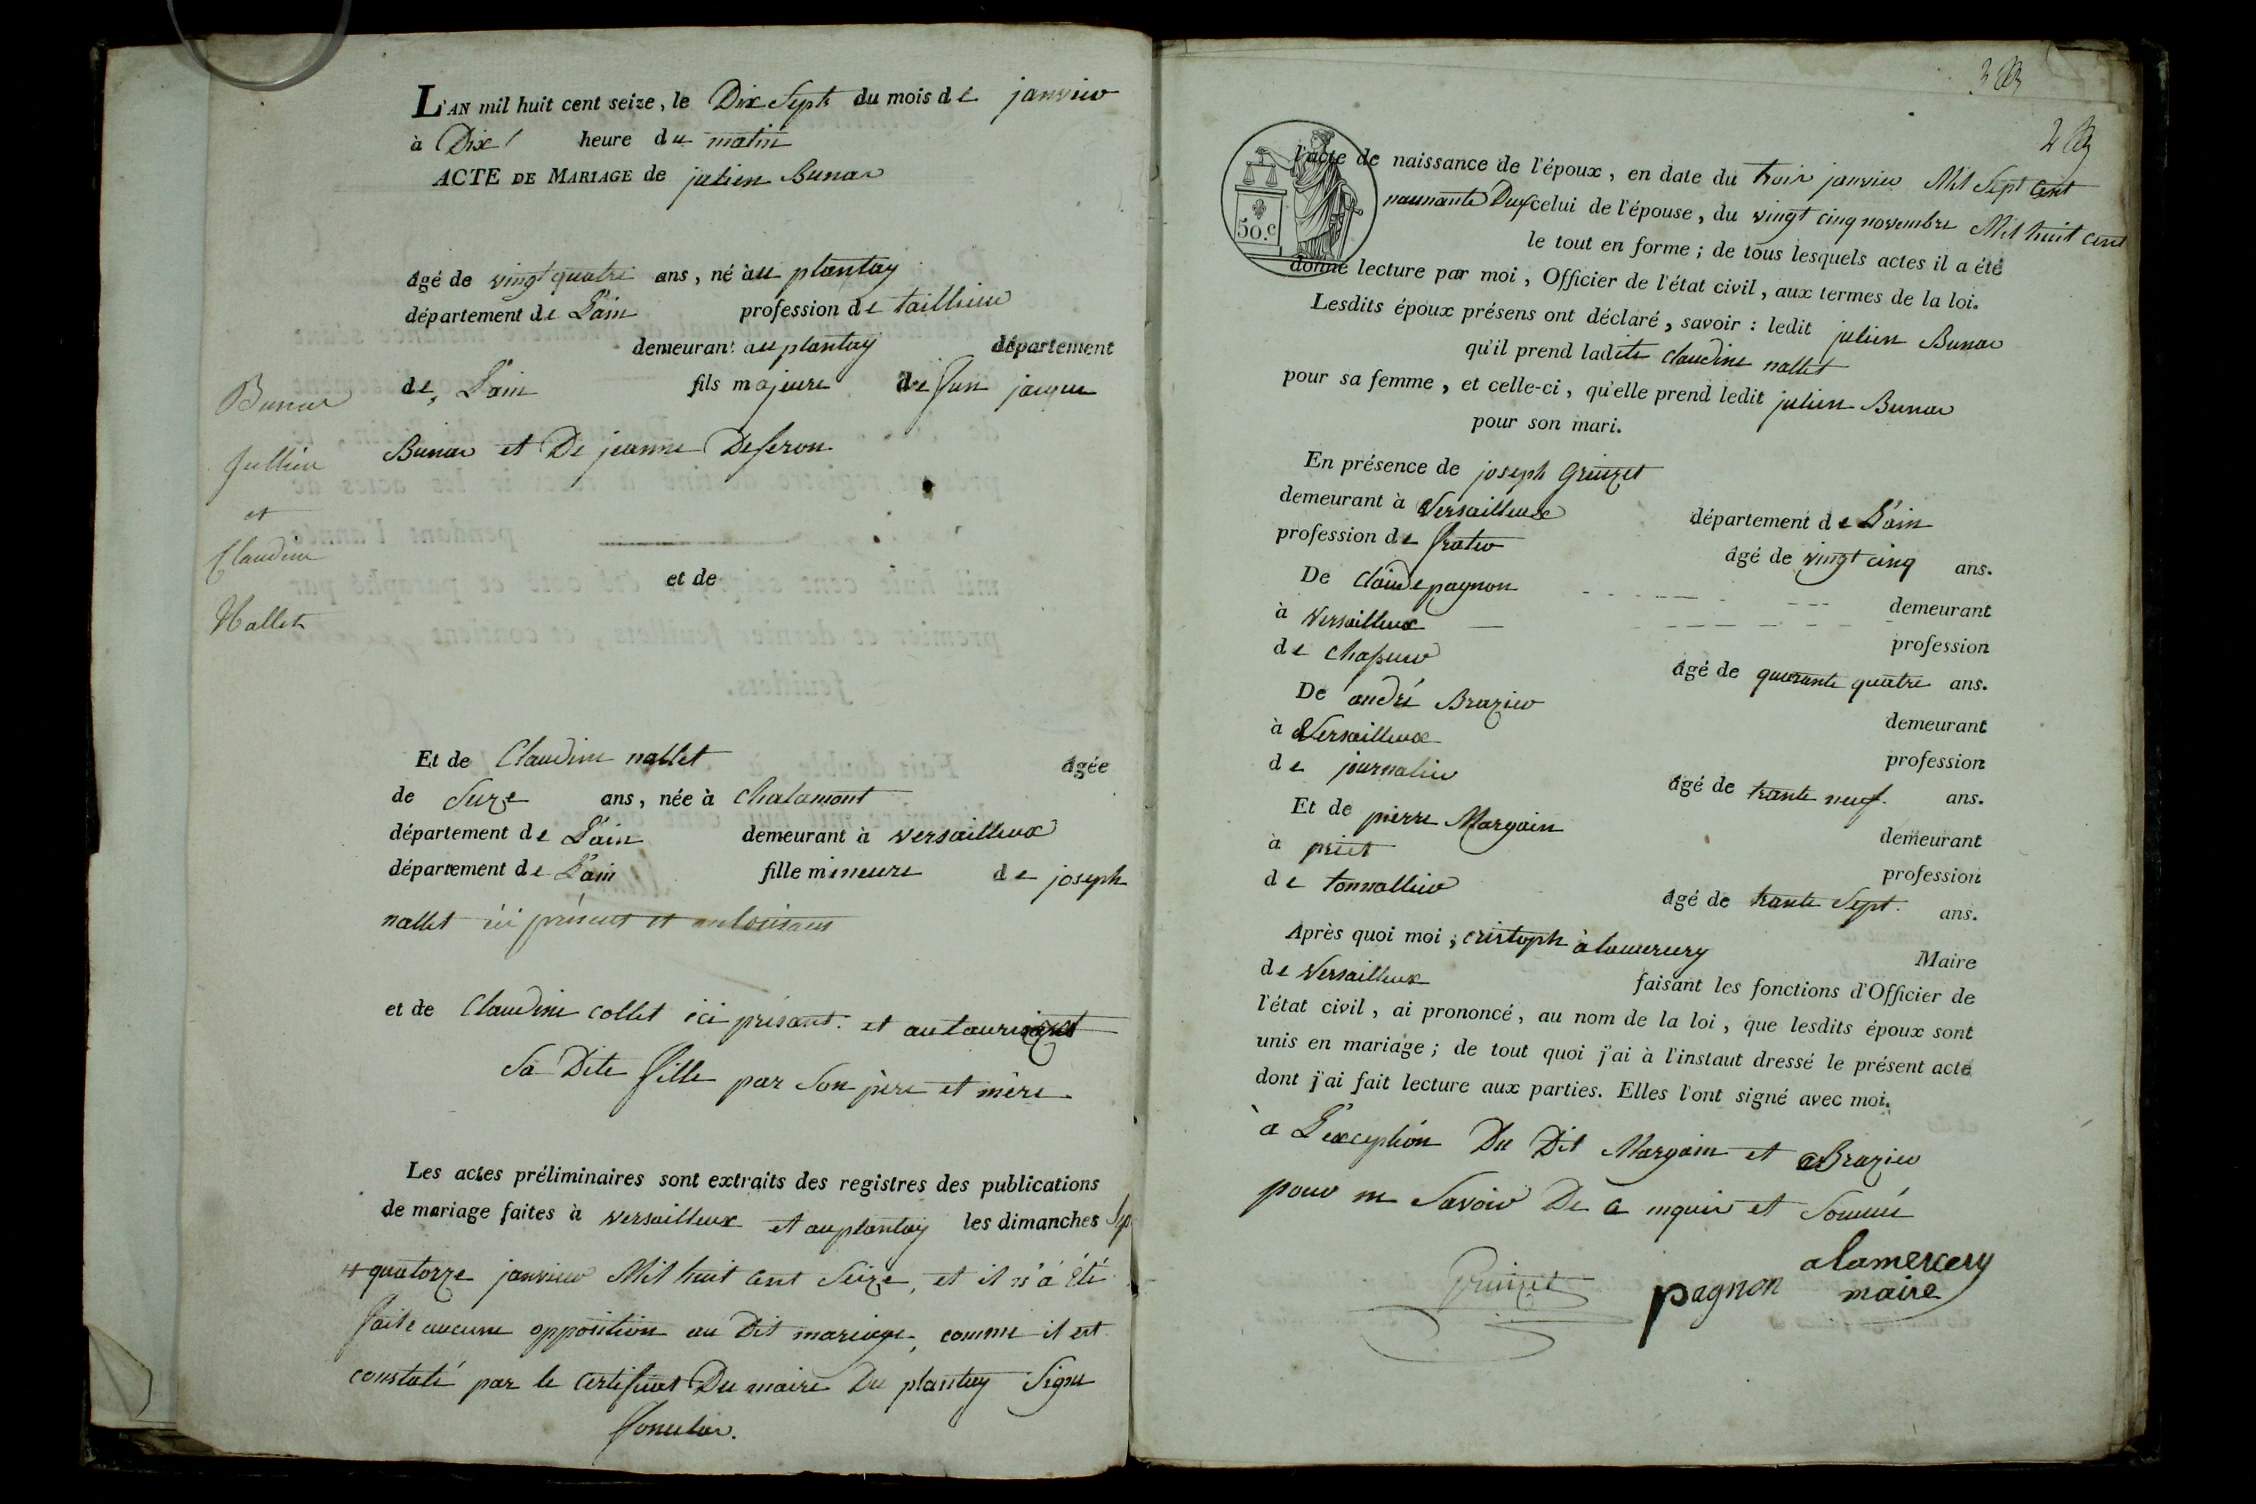 L'AN mil huit cent seize, le Dix Sept du mois de janvier
à Dix heure du matin
ACTE DE MARIAGE de julien Bunar
âgé de vingt quatre ans, né au plantay
département de L'ain profession de taillieur
demeurant au plantay département
de L'ain fils majeure de Jun jacque
Bunar et De jeanne Deseron
Bunar
Jullien
et
Claudine
Nallet
et de
Et de Claudine nallet âgée
de Seize ans, née à Chalamont
département de L'ain demeurant à versailleux
département de L'ain fille mineure de joseph
nallet ici présent et autorisant
et de Claudine collet ici présant et
Sa Dite fille par Son père et mère
Les actes préliminaires sont extraits des registres des publications
de mariage faites à versailleux et au plantay les dimanches Sep
quatorze janvier Mil huit cent Seize, et il n'a été
faite aucune opposition au Dit mariage, comme il est
constaté par le certificat Du maire Du plantay Signe
2
l'acte de naissance de l'époux, en date du trois janvier Mil Sept Cent
nounante Deux celui de l'épouse, du vingt cinq novembre Mil huit cent
50.c
le tout en forme; de tous lesquels actes il a été
donné lecture par moi, Officier de l'état civil, aux termes de la loi.
Lesdits époux présens ont déclaré, savoir: ledit julien Bunar
qu'il prend ladite claudine nallet
pour sa femme, et celle-ci, qu'elle prend ledit julien Bunar
pour son mari.
En présence de joseph Gruizet
demeurant à Versailleux département de L'ain
profession de frater âgé de vingt cinq ans.
De claude pagnon demeurant
à Versailleux profession
de chapuer âgé de quarante quatre ans.
De andré Brazier demeurant
à Versailleux profession
de journalier âgé de trante neuf ans.
Et de pierre Margain demeurant
à priet profession
de tonnallier âgé de trante Sept ans.
Après quoi moi, cristoph alamercery Maire
de Versailleux faisant les fonctions d'Officier de
l'état civil, ai prononcé, au nom de la loi, que lesdits époux sont
unis en mariage; de tout quoi j'ai à l'instaut dressé le présent acte
dont j'ai fait lecture aux parties. Elles l'ont signé avec moi.
a L'exception Du Dit Margain et Brazier
pour ne Savoir De ce inquir et Sommé
alamercery
Gruizet pagnon maire